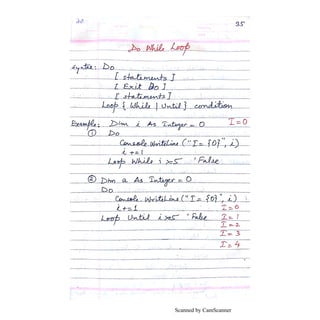 20
35
Do While Loop
Syntax: Do
[ statements ]
[ Exit Do ]
[ statements ]
Loop { While | Until } condition
Example: Dim i As Integer = 0 I=0
① Do
Console.WriteLine ("I = {0}", i)
i += 1
Loop While i >5 'False
② Dim a As Integer = 0
Do
Console.WriteLine ("I = {0}", i)
i += 1 I=0
Loop Until i >5 'False I=1
I=2
I=3
I=4
Scanned by CamScanner